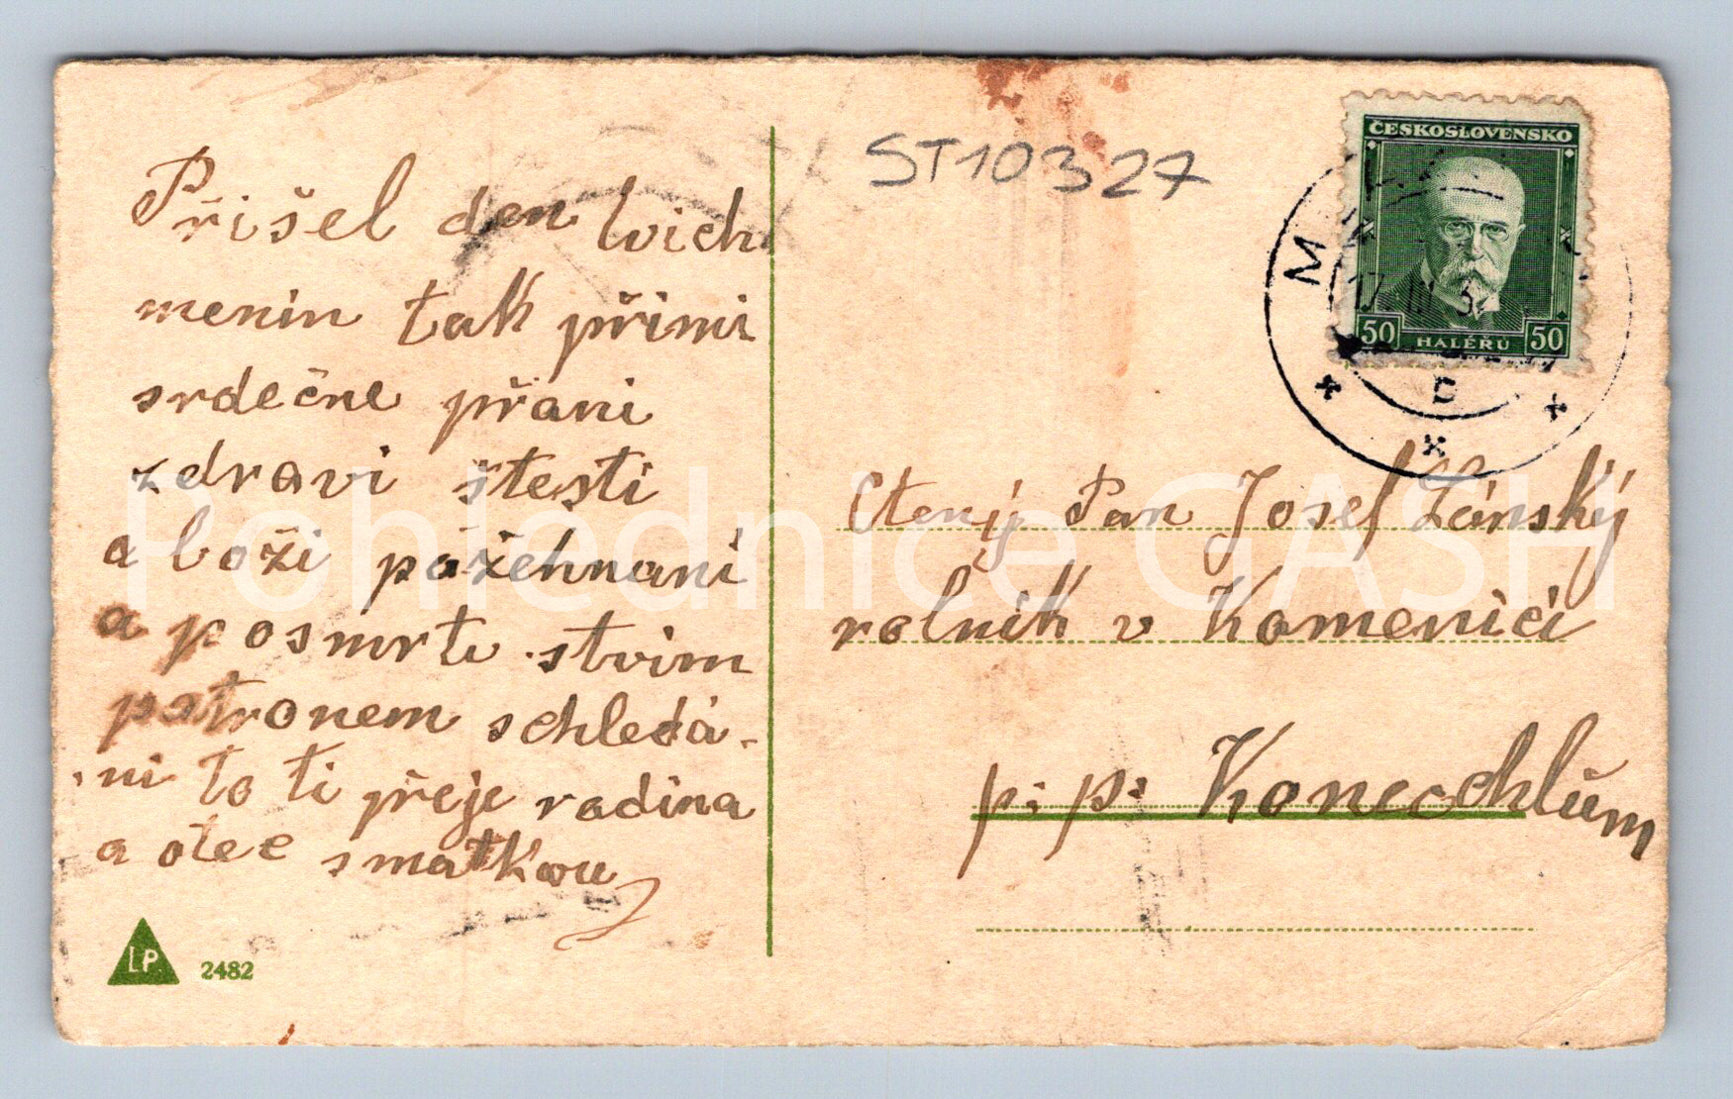 Přišel den tvich
menin tak přimi
srdečne přani
zdravi štesti
a boži požehnani
a posmrti stvim
patronem schledá-
ni to ti přeje radina
a otec smatkou
LP 2482
ST10327
ČESKOSLOVENSKO
50 HALÉŘŮ 50
M
17 III 3
Ctený Pan Josef Lánský
rolnik v Kamenici
p: p: Konecchlům
Pohlednice GASH